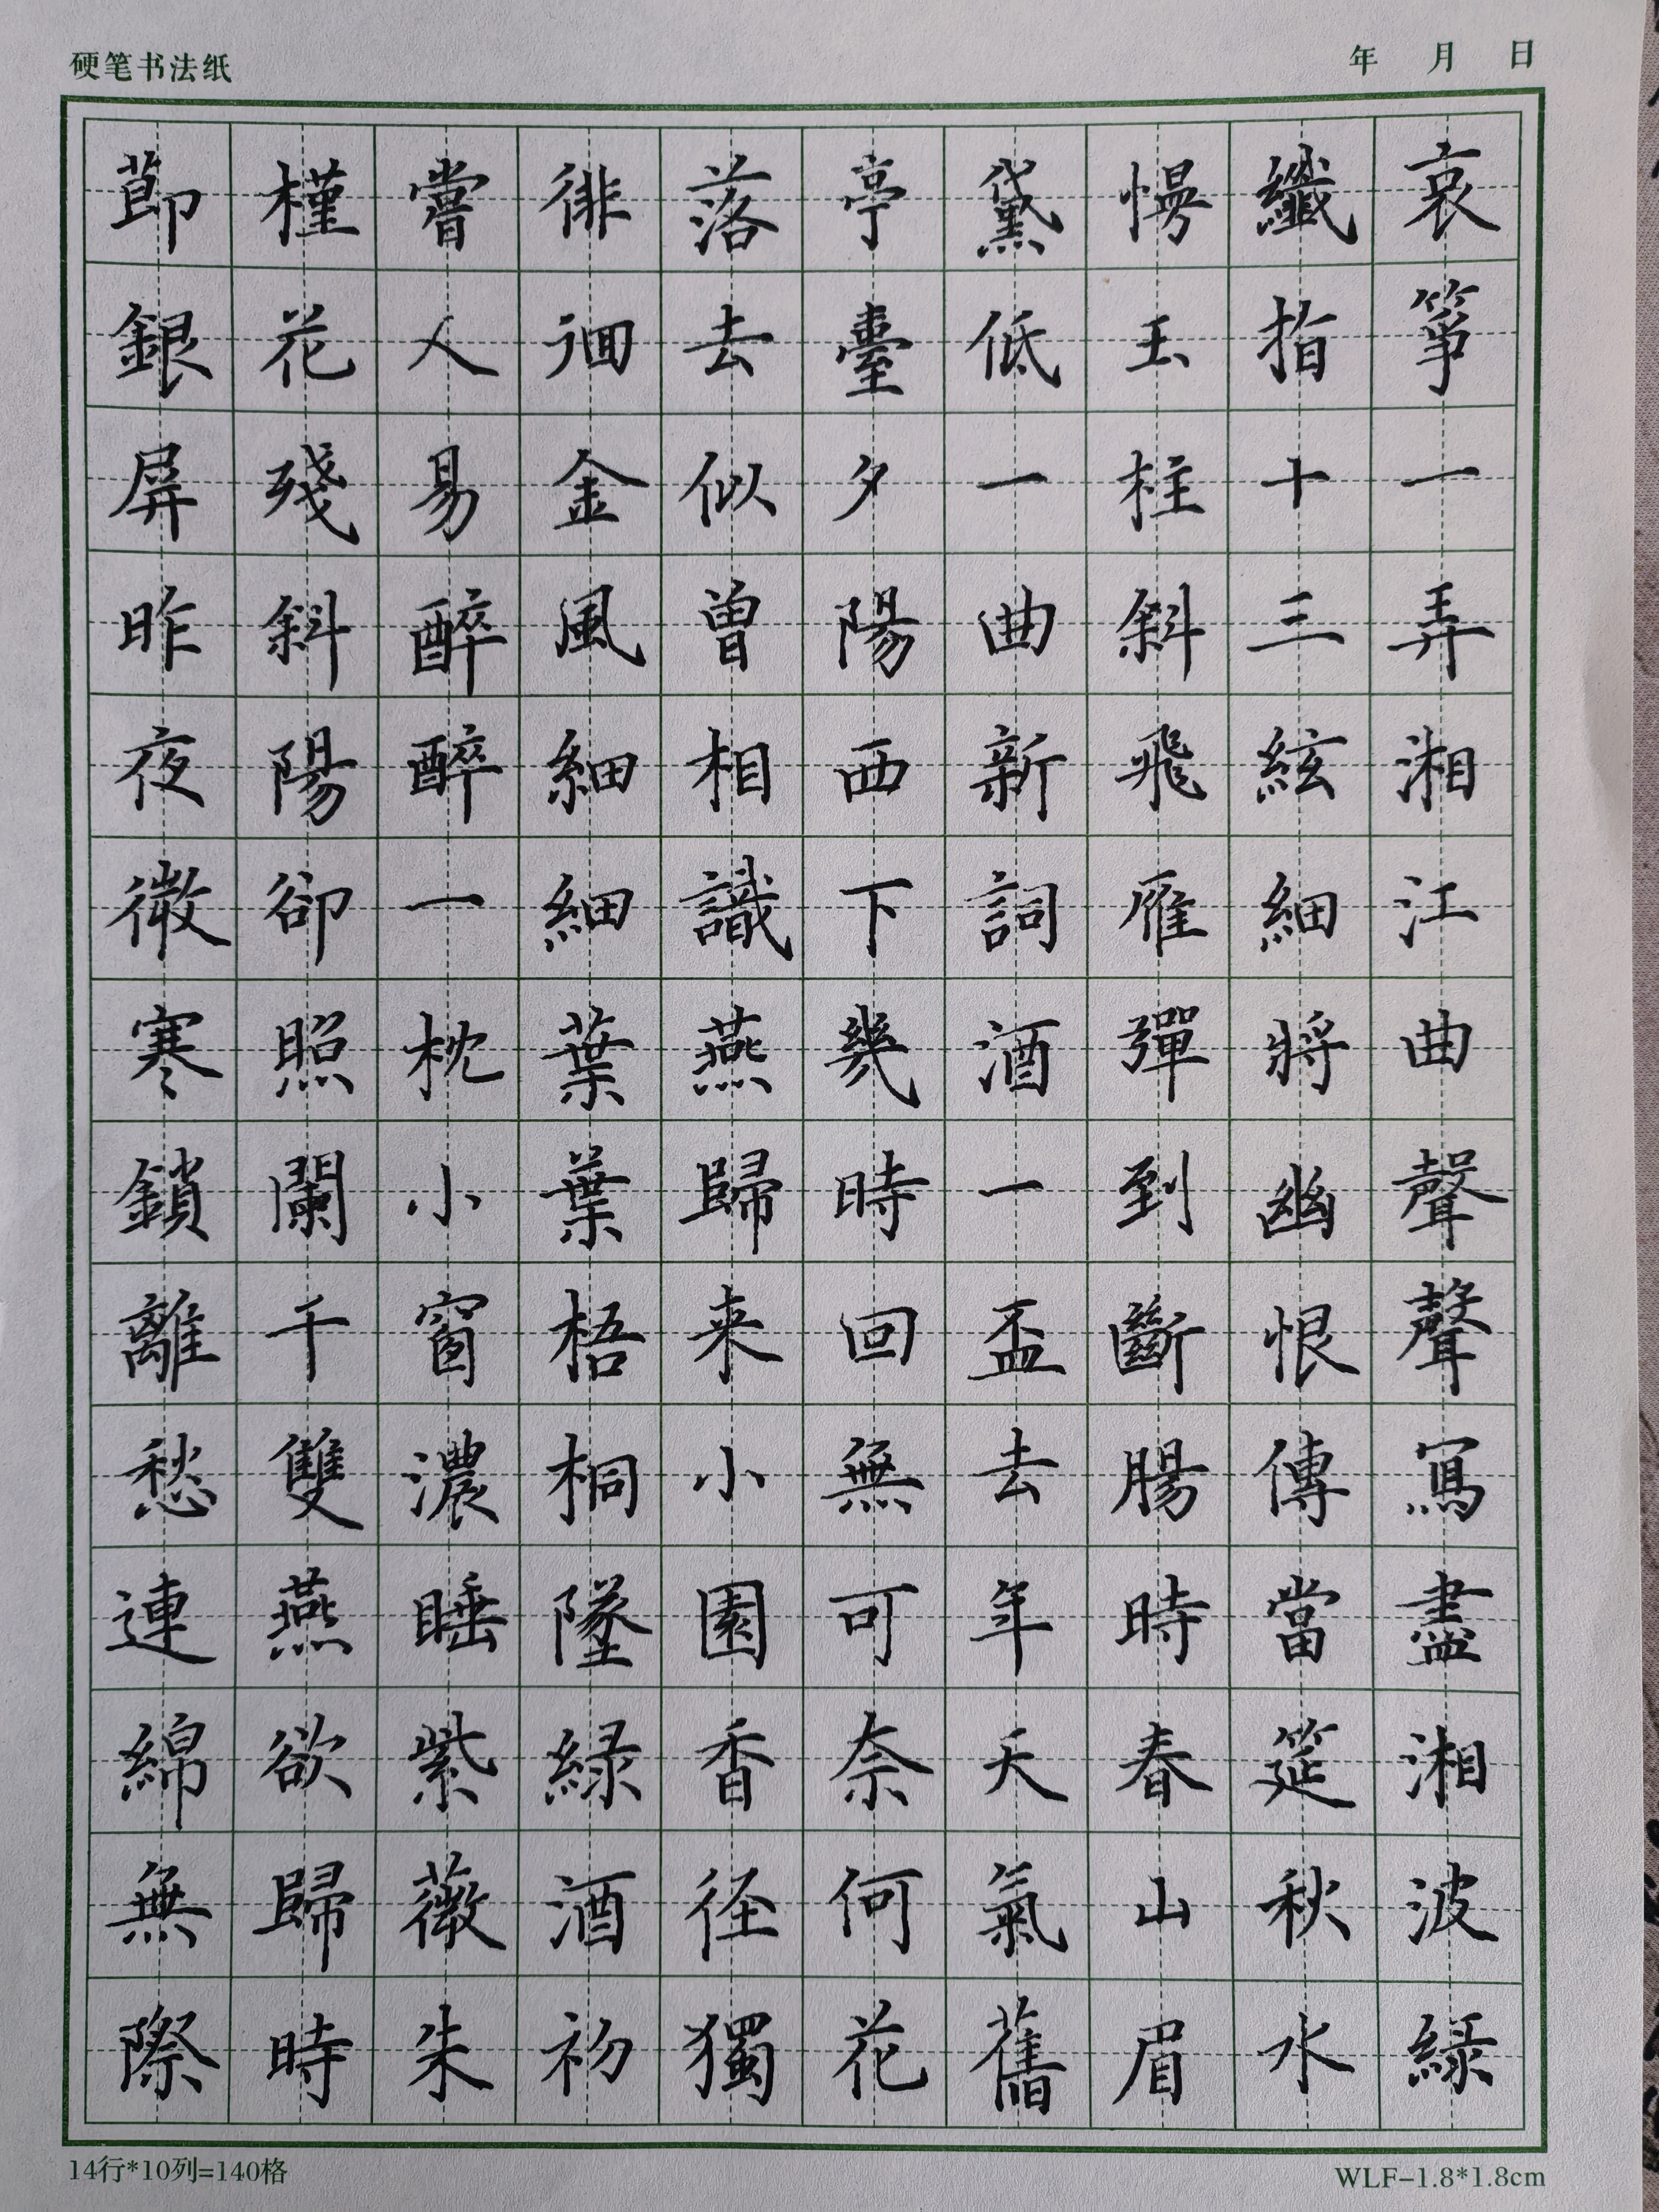 硬笔书法纸
年 月 日
哀箏一弄湘江曲聲聲寫盡湘波綠
纖指十三絃細將幽恨傳當筵秋水
慢玉柱斜飛雁彈到斷腸時春山眉
黛低一曲新詞酒一盃去年天氣舊
亭臺夕陽西下幾時回無可奈何花
落去似曾相識燕歸来小園香径獨
徘徊金風細細葉葉梧桐墜綠酒初
嘗人易醉醉一枕小窗濃睡紫薇朱
槿花殘斜陽卻照闌干雙燕欲歸時
節銀屏昨夜微寒鎖離愁連綿無際
14行*10列=140格
WLF-1.8*1.8cm